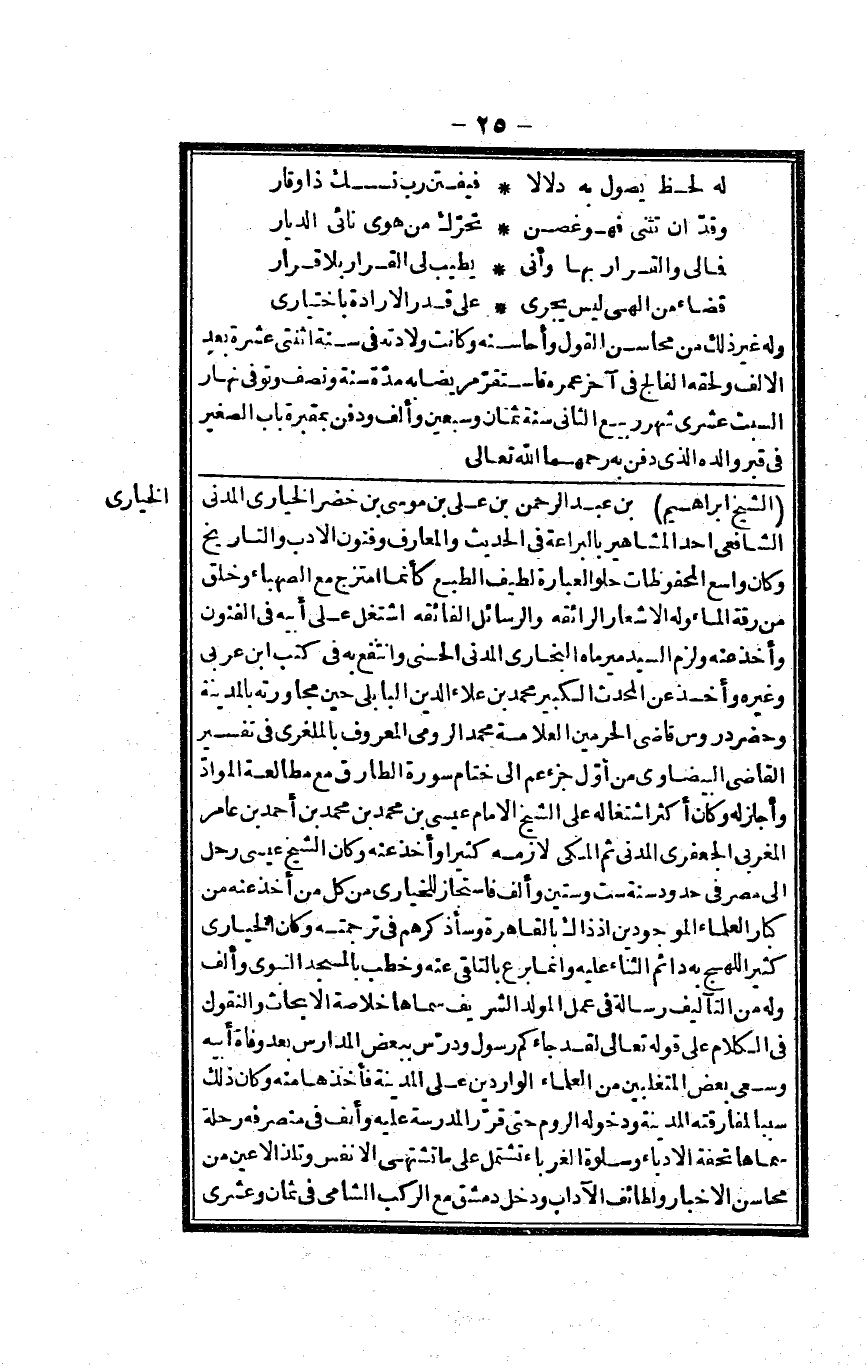 – ٢٥ –
له لحـظ يصول به دلالا * فيفـتن رب نسـك ذا وقار
وقدّ ان تثنى فهـو غصـن * تحرّك من هوى نائى الديار
فـالى والقـرار بهـا وأنى * يطيب لى القـرار بلا قـرار
قضـاء من الهـى ليس يجرى * على قـدر الارادة باختيارى
وله غير ذلك من محاسـن القول وأحاسـنه وكانت ولادته فى سـنة اثنتى عشرة بعد
الالف ولحقه الفالج فى آخر عمره فاستقرّ مريضا به مدّة سنة ونصف وتوفى نهار
السبت عشرى شهر ربيع الثانى سنة ثمان وسبعين وألف ودفن بمقبرة باب الصغير
فى قبر والده الذى دفن به رحمهـما الله تعالى
الخيارى
(الشيخ ابراهـيم) بن عبـد الرحمن بن عـلى بن موسى بن خضر الخيارى المدنى
الشافعى احد المشاهير بالبراعة فى الحديث والمعارف وفنون الادب والتاريخ
وكان واسع المحفوظات حلو العبارة لطيف الطبع كأنما امتزج مع الصهباء وخلق
من رقة الماء وله الاشعار الرائقه والرسائل الفائقه اشتغل عـلى أبيه فى الفنون
وأخذ عنه ولزم السيد ميرماه البخارى المدنى الحسنى وانتفع به فى كتب ابن عربى
وغيره وأخـذ عن المحدث الكبير محمد بن علاء الدين البابلى حين مجاورته بالمدينة
وحضر دروس قاضى الحرمين العلامـة محمد الرومى المعروف بالملغرى فى تفسير
القاضى البيضاوى من أوّل جزء عم الى ختام سورة الطارق مع مطالعة الموادّ
وأجازله وكان أكثر اشتغاله على الشيخ الامام عيسى بن محمد بن محمد بن أحمد بن عامر
المغربى الجعفرى المدنى ثم المكى لازمـه كثيرا وأخذ عنه وكان الشيخ عيسى رحل
الى مصر فى حدود سنة ست وستين وألف فاستجاز للخيارى من كل من أخذ عنه من
كار العلماء الموجودين اذذاك بالقاهرة وسأذكرهم فى ترجمته وكان الخيارى
كثير اللهج به دائم الثناء عليه وانما برع بالتلقى عنه وخطب بالمسجد النبوى وألف
وله من التآليف رسالة فى عمل المولد الشريف سماها خلاصة الابحاث والنقول
فى الكلام على قوله تعالى لقد جاءكم رسول ودرّس ببعض المدارس بعد وفاة أبيه
وسـعى بعض المتغلبين من العلماء الواردين عـلى المدينة فأخذها منه وكان ذلك
سببا لمفارقته المدينة ودخوله الروم حتى قرّر المدرسة عليه وألف فى منصرفه رحلة
سماها تحفة الادباء وسلوة الغرباء تشتمل على ما تشتهى الانفس وتلذ الاعين من
محاسن الاخبار ولطائف الآداب ودخل دمشق مع الركب الشامى فى ثمان وعشرى